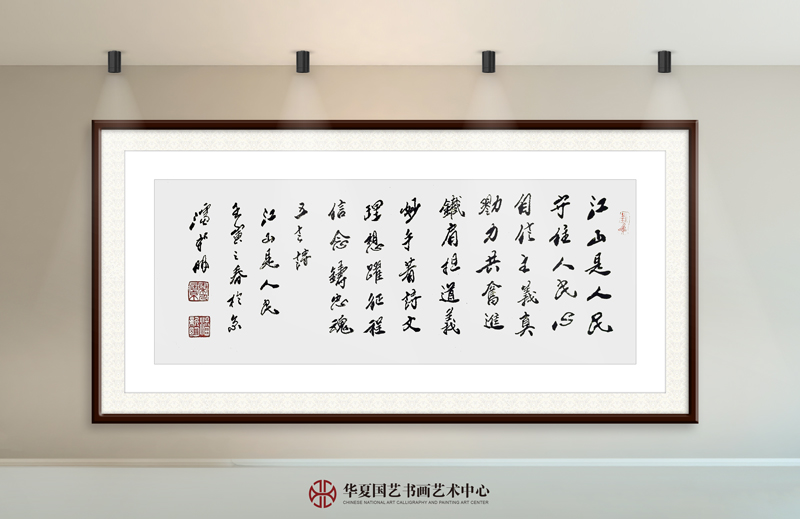 江山是人民
守住人民心
自信主義真
勠力共奮進
鐵肩担道義
妙手著詩文
理想躍征程
信念鑄忠魂
五言詩
江山是人民
壬寅之春於京
潘
华夏国艺书画艺术中心
CHINESE NATIONAL ART CALLIGRAPHY AND PAINTING ART CENTER